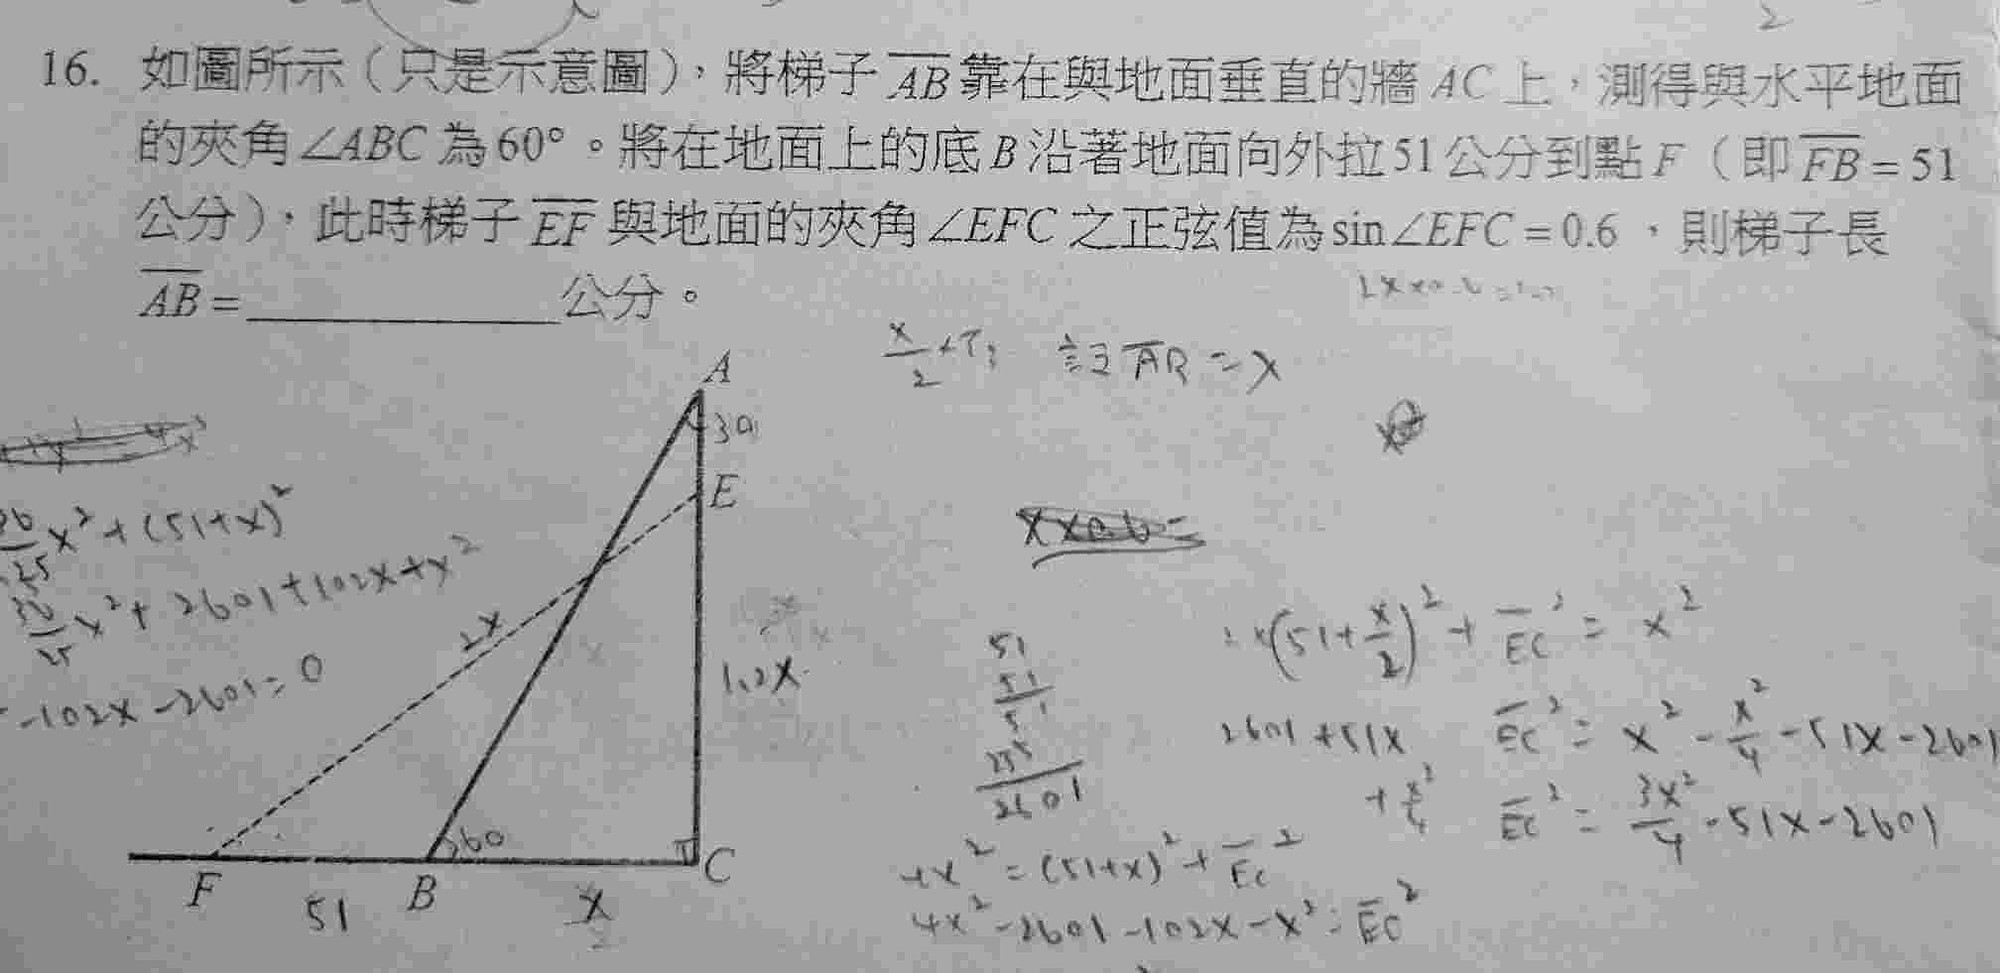 16. 如圖所示（只是示意圖），將梯子 AB 靠在與地面垂直的牆 AC 上，測得與水平地面
的夾角∠ABC 為 60°。將在地面上的底 B 沿著地面向外拉 51 公分到點 F（即 FB = 51
公分），此時梯子 EF 與地面的夾角∠EFC 之正弦值為 sin∠EFC = 0.6，則梯子長
AB = ____________ 公分。
設 AB = x
A
30
E
2x
1.2x
60
F
B
C
51
x
x² + (51+x)²
x² + 2601 + 102x + x²
-102x - 2601 = 0
51
51
51
255
2601
(51 + x/2)² + EC² = x²
2601 + 51x
EC² = x² - x²/4 - 51x - 2601
EC² = 3x²/4 - 51x - 2601
4x² = (51+x)² + EC²
4x² - 2601 - 102x - x² = EC²